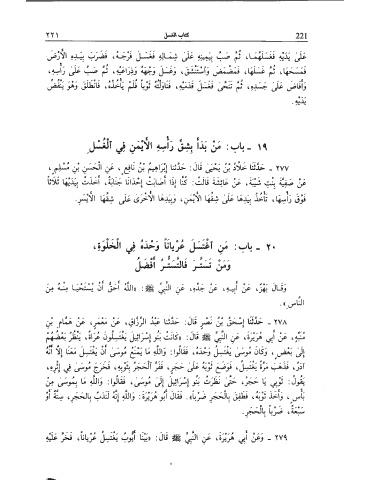 221
كتاب الغسل
٢٢١
عَلَىٰ يَدَيْهِ فَغَسَلَهُمَا، ثُمَّ صَبَّ بِيَمِينِهِ عَلَى شِمَالِهِ فَغَسَلَ فَرْجَهُ، فَضَرَبَ بِيَدِهِ الأَرْضَ
فَمَسَحَهَا، ثُمَّ غَسَلَهَا، فَمَضْمَضَ وَاسْتَنْشَقَ، وَغَسَلَ وَجْهَهُ وَذِرَاعَيْهِ، ثُمَّ صَبَّ عَلَى رَأْسِهِ،
وَأَفَاضَ عَلَى جَسَدِهِ، ثُمَّ تَنَحَّى فَغَسَلَ قَدَمَيْهِ، فَنَاوَلْتُهُ ثَوْباً فَلَمْ يَأْخُذْهُ، فَانْطَلَقَ وَهُوَ يَنْفُضُ
يَدَيْهِ.
١٩ ـ باب: مَنْ بَدَأَ بِشِقِّ رَأْسِهِ الأَيْمَنِ فِي الْغُسْلِ
٢٧٧ ـ حَدَّثَنَا خَلَّادُ بْنُ يَحْيَى قَالَ: حَدَّثَنَا إِبْرَاهِيمُ بْنُ نَافِعٍ، عَنِ الْحَسَنِ بْنِ مُسْلِمٍ،
عَنْ صَفِيَّةَ بِنْتِ شَيْبَةَ، عَنْ عَائِشَةَ قَالَتْ: كُنَّا إِذَا أَصَابَتْ إِحْدَانَا جَنَابَةٌ، أَخَذَتْ بِيَدَيْهَا ثَلَاثاً
فَوْقَ رَأْسِهَا، تَأْخُذُ بِيَدِهَا عَلَى شِقِّهَا الأَيْمَنِ، وَبِيَدِهَا الأُخْرَى عَلَى شِقِّهَا الأَيْسَرِ.
٢٠ ـ باب: مَنِ اغْتَسَلَ عُرْيَاناً وَحْدَهُ فِي الْخَلْوَةِ،
وَمَنْ تَسَتَّرَ فَالتَّسَتُّرُ أَفْضَلُ
وَقَالَ بَهْزٌ، عَنْ أَبِيهِ، عَنْ جَدِّهِ، عَنِ النَّبِيِّ ﷺ: «اللَّهُ أَحَقُّ أَنْ يُسْتَحْيَا مِنْهُ مِنَ
النَّاسِ».
٢٧٨ ـ حَدَّثَنَا إِسْحَقُ بْنُ نَصْرٍ قَالَ: حَدَّثَنَا عَبْدُ الرَّزَّاقِ، عَنْ مَعْمَرٍ، عَنْ هَمَّامِ بْنِ
مُنَبِّهٍ، عَنْ أَبِي هُرَيْرَةَ، عَنِ النَّبِيِّ ﷺ قَالَ: «كَانَتْ بَنُو إِسْرَائِيلَ يَغْتَسِلُونَ عُرَاةً، يَنْظُرُ بَعْضُهُمْ
إِلَى بَعْضٍ، وَكَانَ مُوسَى يَغْتَسِلُ وَحْدَهُ، فَقَالُوا: وَاللَّهِ مَا يَمْنَعُ مُوسَى أَنْ يَغْتَسِلَ مَعَنَا إِلَّا أَنَّهُ
آدَرُ، فَذَهَبَ مَرَّةً يَغْتَسِلُ، فَوَضَعَ ثَوْبَهُ عَلَى حَجَرٍ، فَفَرَّ الْحَجَرُ بِثَوْبِهِ، فَخَرَجَ مُوسَى فِي إِثْرِهِ،
يَقُولُ: ثَوْبِي يَا حَجَرُ، حَتَّى نَظَرَتْ بَنُو إِسْرَائِيلَ إِلَى مُوسَى، فَقَالُوا: وَاللَّهِ مَا بِمُوسَى مِنْ
بَأْسٍ، وَأَخَذَ ثَوْبَهُ، فَطَفِقَ بِالْحَجَرِ ضَرْباً». فَقَالَ أَبُو هُرَيْرَةَ: وَاللَّهِ إِنَّهُ لَنَدَبٌ بِالْحَجَرِ، سِتَّةٌ أَوْ
سَبْعَةٌ، ضَرْباً بِالْحَجَرِ.
٢٧٩ ـ وَعَنْ أَبِي هُرَيْرَةَ، عَنِ النَّبِيِّ ﷺ قَالَ: «بَيْنَا أَيُّوبُ يَغْتَسِلُ عُرْيَاناً، فَخَرَّ عَلَيْهِ